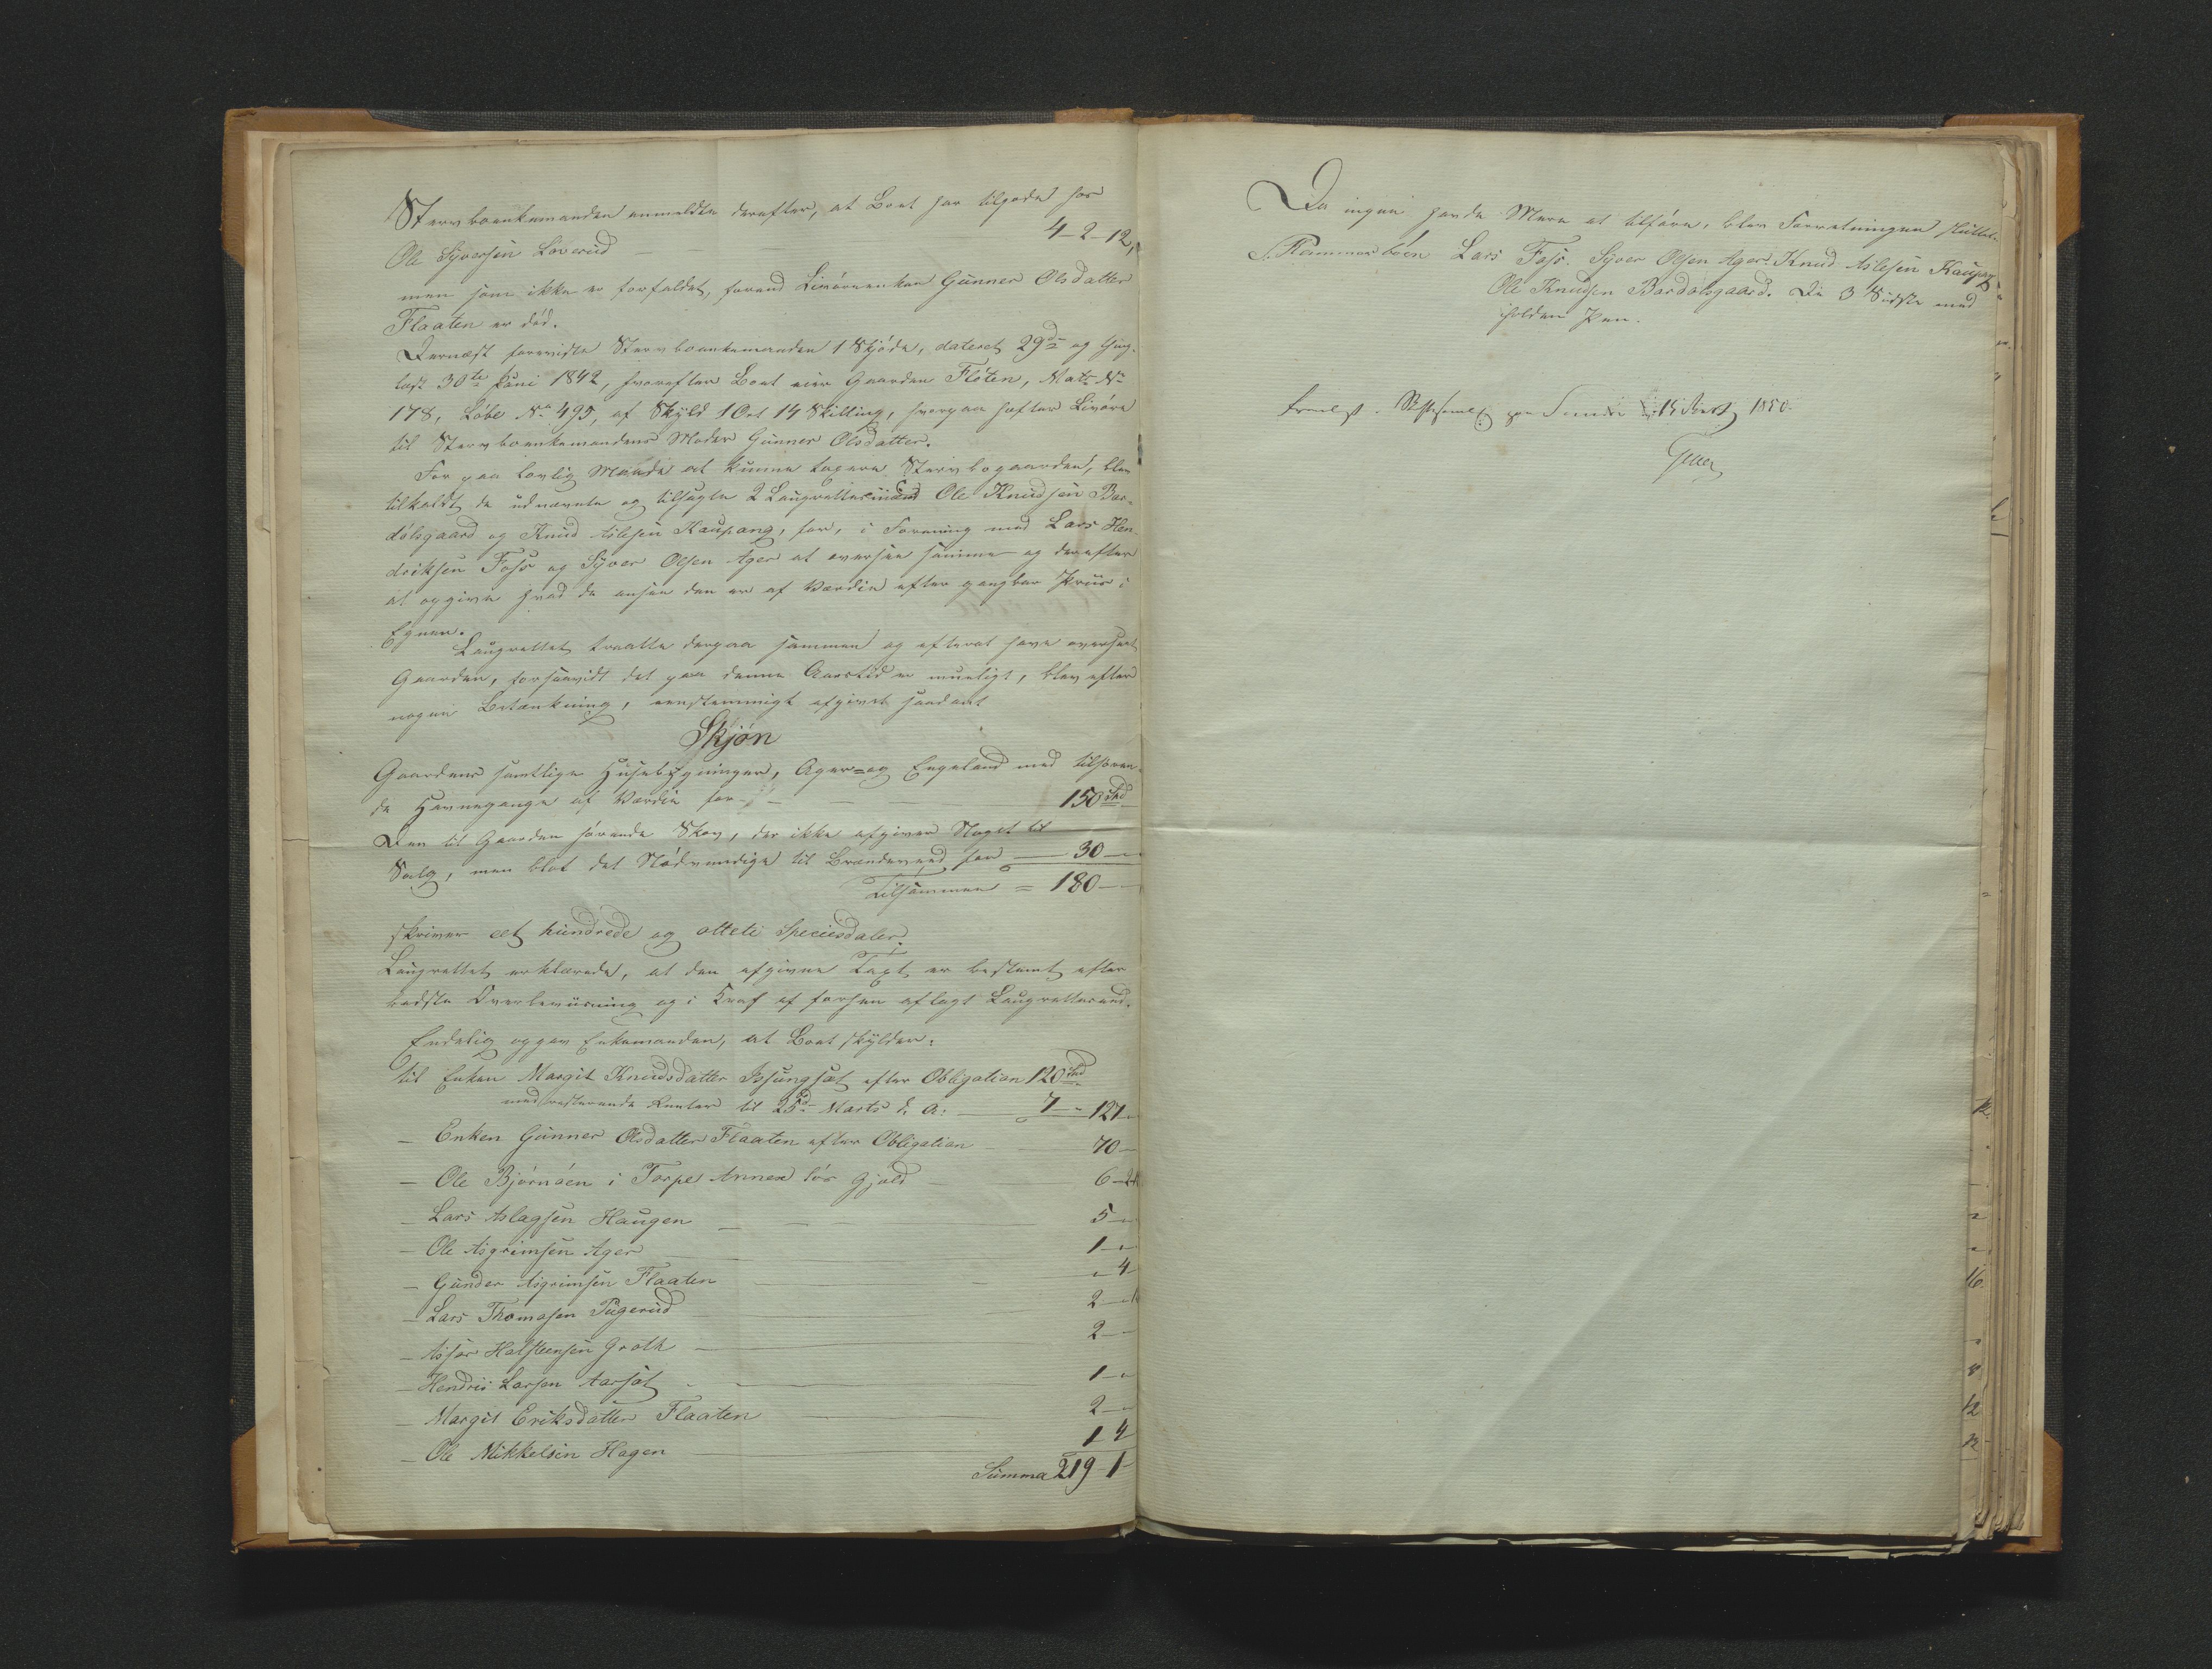 Stervboenkemanden anmeldte derefter, at Boet har tilgode hos
Ole Syversen Loverud — 4-2-12,
men som ikke er forfaldet, forend Livørenken Gunner Olsdatter
Flaaten er død.
Dernæst foreviste Stervboenkemanden 1 Skjøde, dateret 29de og thing-
læst 30te Juni 1842, hvorefter Boet eier Gaarden Fløten, Matr. No
178, Løbe No 495, af Skyld 1 Ort 14 Skilling, hvorpaa hefter Livøre
til Stervboenkemandens Moder Gunner Olsdatter.
For paa lovlig Maade at kunne taxere Stervbogaarden, blev
tilkaldt de udnævnte og tilsagte 2 Laugrettesmænd Ole Knudsen Bar-
dølsgaard og Knud Aslesen Kaupang, for, i Forening med Lars Hen-
driksen Foss og Syver Olsen Ager at oversee samme og derefter
at opgive hvad de ansee den er af Værdie efter gangbar Priis i
Egnen.
Laugrettet traatte derpaa sammen og efterat have overseet
Gaarden, forsaavidt det paa denne Aarstid er mueligt, blev efter
nogen Betænkning, eenstemmigt afgivet saadant
Skjøn
Gaardens samtlige Huusebygninger, Ager- og Engeland med tilhøren-
de Havnegange af Værdie for — 150 Spd
Den til Gaarden hørende Skov, der ikke afgiver Noget til
Salg, men blot det Nødvendige til Brændeved for — 30 —
Tilsammen = 180 —
skriver eet hundrede og otteti Speciesdaler.
Laugrettet erklærede, at den afgivne Taxt er bestemt efter
bedste Overbeviisning og i Kraf af forhen aflagt Laugrettesed.
Endelig opgav Enkemanden, at Boet skylder:
til Enken Margit Knudsdatter efter Obligation 120 Spd
med resterende Renter til 25de Marts d. A: — 7 — 127 —
— Enken Gunner Olsdatter Flaaten efter Obligation — 70 —
— Ole Bjørnøen i Torpe Annex løs Gjeld — 6-24
— Lars Aslagsen Haugen — 5 —
— Ole Asgrimsen Ager — 1 —
— Gunder Asgrimsen Flaaten — „ 4 —
— Lars Thomasen — 2 —
— Assor Halsteensen Groth — 2 —
— Hendrii Larsen Aarsøt — 1 —
— Margit Eriksdatter Flaaten — 2 —
— Ole Mikkelsen Hagen — 1 4
Summa 219-1-
Da ingen havde Mere at tilføre, blev Forretningen sluttet.
S. Rammersbøen Lars Foss. Syver Olsen Ager. Knud Aslesen Kaupang
Ole Knudsen Bardølsgaard. De 3 Sidste med
holden Pen.
Fremlagt i Skiftesamling paa 15 1850.